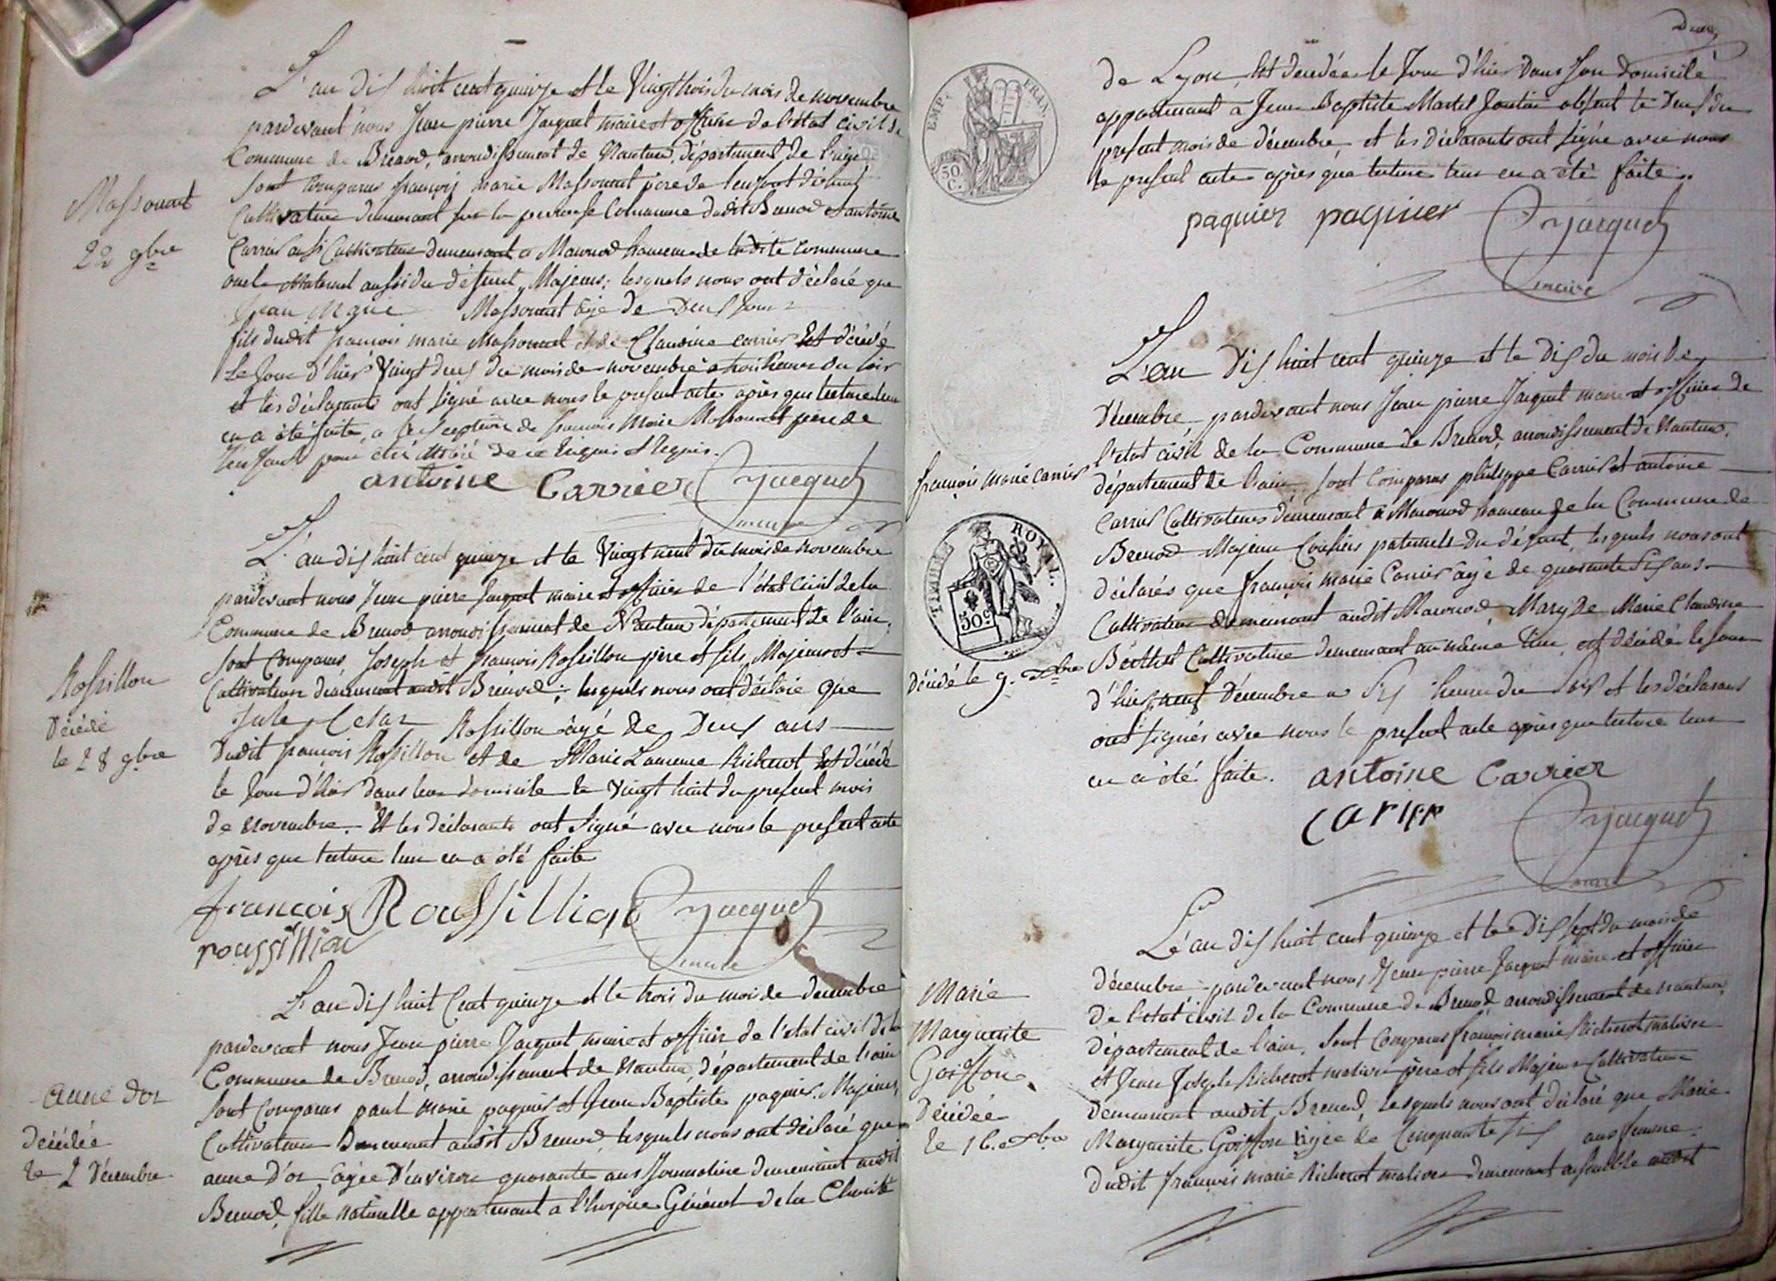 L'an dix huit cent quinze et le Vingt trois du mois de novembre
pardevant nous Jean pierre Jacquet maire et officier de l'état civil de
Commune de Brenod, arrondissement de Nantua, département de l'ain
sont comparus françois marie Massonnet père de l'enfant défunt
Cultivateur demeurant sur la commune dudit Brenod et antoine
Carrier aussi Cultivateur demeurant a Maconod hameau de la dite commune
oncle maternel aussi du défunt, Majeurs; lesquels nous ont déclaré que
Jean Marie Massonnet âgé de Deux Jours
fils dudit francois marie Massonnet et de Claudine carrier Est décédé
le Jour d'hier Vingt deux du mois de novembre à trois heures du soir
et les déclarants ont signé avec nous le present acte après que lecture leur
en a été faite, a l'exception de francois Marie Massonnet père de
l'enfant pour été illitéré de ce Enquis et Requis.
antoine Carrier Jacquet
maire
Massonnet
22 9bre
L'an dix huit cent quinze et le Vingt neuf du mois de novembre
pardevant nous Jean pierre Jacquet maire et officier de l'état Civil de la
Commune de Brenod, arrondissement de Nantua département de l'ain,
sont Comparus Joseph et francois Rossillon père et fils, Majeurs et
Cultivateurs demeurant audit Brenod; lesquels nous ont déclaré que
Jule Cesar Rossillon âgé de Deux ans
Dudit francois Rossillon et de Marie Laurence Richerot Est décédé
le Jour d'hier dans leur domicile le Vingt huit du present mois
de Novembre. Et les déclarants ont signé avec nous le present acte
après que lecture leur en a été faite
francois Roussillion Jacquet
roussillion
maire
Rossillon
Décédé
le 28 9bre
L'an dix huit Cent quinze et le trois du mois de decembre
pardevant nous Jean pierre Jacquet maire et officier de l'etat civil de la
Commune de Brenod, arrondissement de Nantua département de l'ain
sont Comparus paul marie paquier et Jean Baptiste paquier, Majeurs,
Cultivateurs Demeurant audit Brenod, lesquels nous ont déclaré que
anne D'or âgée D'environ quarante ans Journalière demeurant audit
Brenod, fille naturelle appartenant a l'hospice Général de la Charité
anne d'or
décédée
le 2 Décembre
Deux
de Lyon, Est décédée le Jour d'hier Dans son domicile
appartenant a Jean Baptiste Martel Joutin absent le Deux du
present mois de décembre, et les déclarants ont signé avec nous
le present acte après que lecture leur en a été faite.
paquier paquier Jacquet
maire
EMP. FRAN.
50 C.
L'an Dix huit cent quinze et le Dix du mois de
Décembre pardevant nous Jean pierre Jacquet maire et officier de
l'etat civil de la Commune de Brenod, arrondissement de Nantua,
département de l'ain, sont Comparus philippe Carrier et antoine
Carrier Cultivateurs demeurant à Maconod hameau de la Commune de
Brenod Majeurs Cousins paternels du défunt, lesquels nous ont
déclarés que françois marie Carrier âgé de quarante six ans
Cultivateur demeurant audit Maconod Mary de Marie Claudine
Cultivatrice demeurant au même lieu, est décédé le Jour
d'hier neuf Décembre a six heures du soir et les déclarans
ont signés avec nous le present acte après que lecture leur
en a été faite. antoine Carrier
carier Jacquet
maire
françois marie Carrier
TIMBRE ROYAL
50c
Décédé le 9. Xbre
L'an dix huit cent quinze et le Dix sept du mois de
décembre pardevant nous Jean pierre Jacquet maire et officier
de l'état civil de la Commune de Brenod arrondissement de Nantua,
Département de l'ain. Sont Comparus françois marie Richerot
et Jean Joseph Richerot père et fils Majeurs Cultivateurs
demeurant audit Brenod, lesquels nous ont déclaré que Marie
Marguerite Goiffon âgée de Cinquante six ans femme
dudit françois marie Richerot demeurant ensemble audit
Marie
Marguerite
Goiffon
Décédée
le 16. Xbre